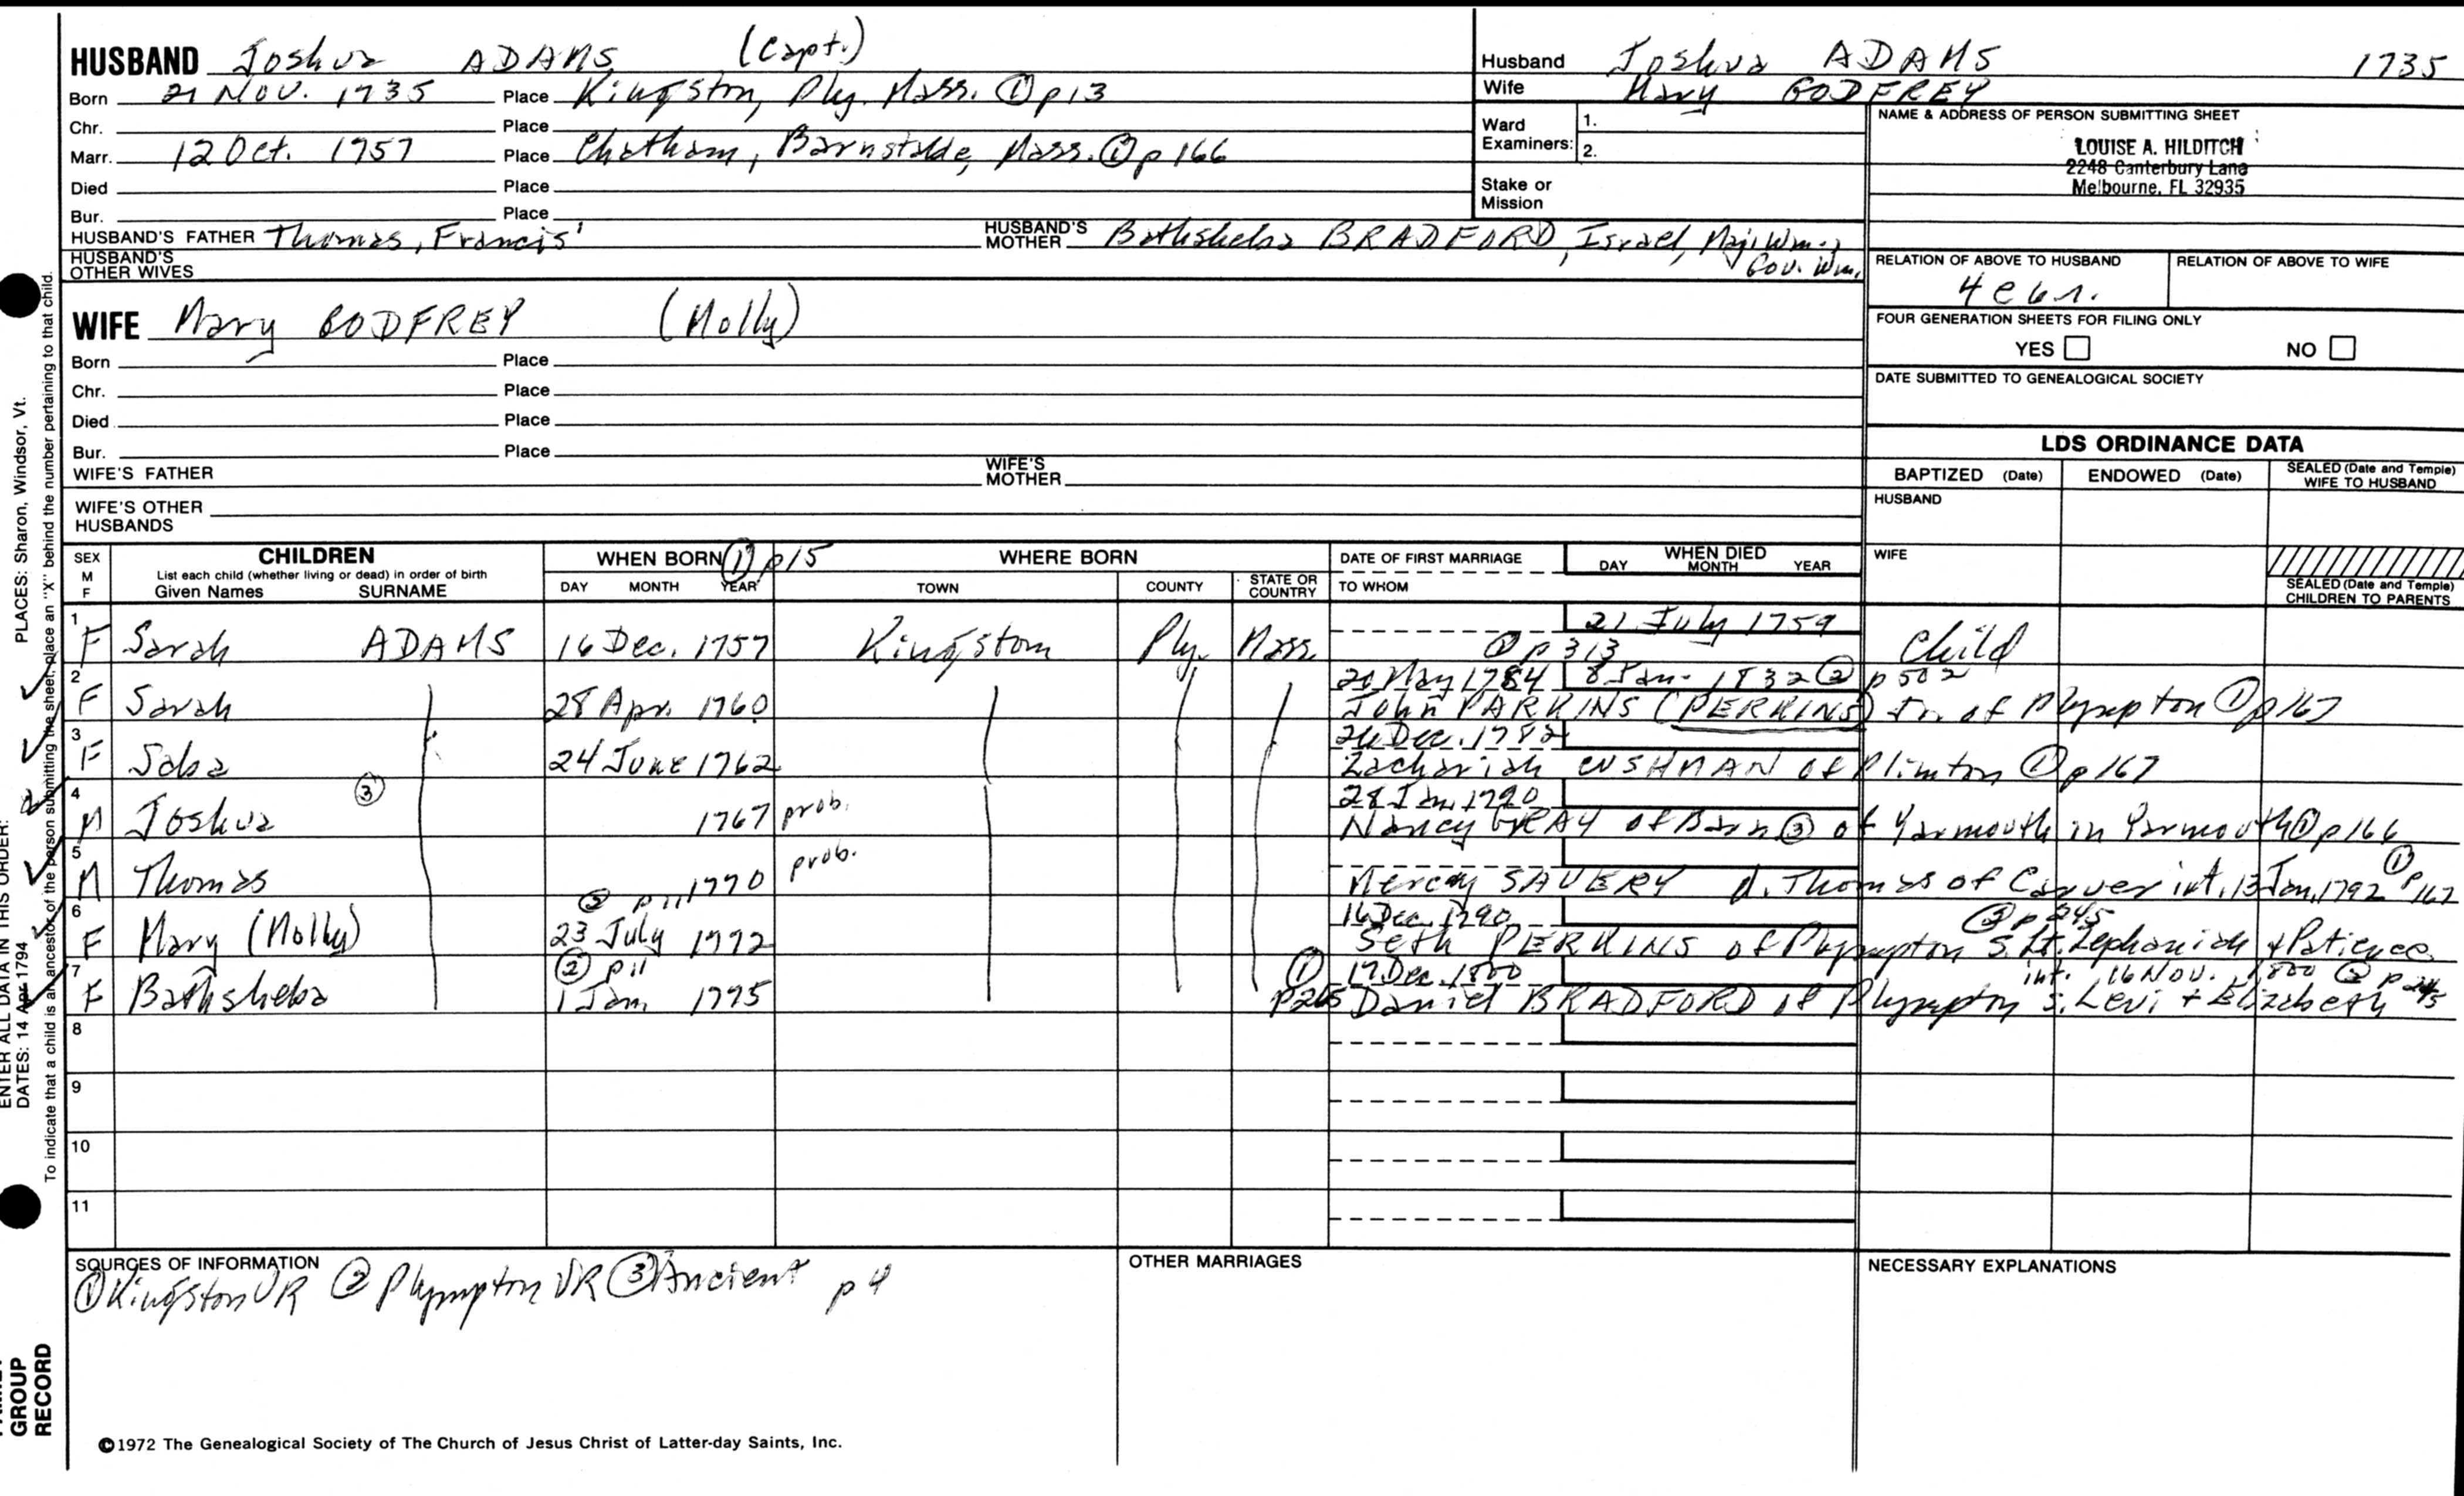 HUSBAND Joshua ADAMS (Capt.)
Born 21 Nov. 1735 Place Kingston, Ply. Mass. ① p13
Chr. Place
Marr. 12 Oct. 1757 Place Chatham, Barnstable, Mass. ① p 166
Died Place
Bur. Place
HUSBAND'S FATHER Thomas, Francis' HUSBAND'S MOTHER Bathsheba BRADFORD, Israel, Maj. Wm.,
Gov. Wm.
HUSBAND'S OTHER WIVES
Husband Joshua ADAMS 1735
Wife Mary GODFREY
Ward Examiners: 1.
2.
Stake or Mission
NAME & ADDRESS OF PERSON SUBMITTING SHEET
LOUISE A. HILDITCH
2248 Canterbury Lane
Melbourne, FL 32935
RELATION OF ABOVE TO HUSBAND RELATION OF ABOVE TO WIFE
FOUR GENERATION SHEETS FOR FILING ONLY
YES NO
DATE SUBMITTED TO GENEALOGICAL SOCIETY
WIFE Mary GODFREY (Molly)
Born Place
Chr. Place
Died Place
Bur. Place
WIFE'S FATHER WIFE'S MOTHER
WIFE'S OTHER HUSBANDS
LDS ORDINANCE DATA
BAPTIZED (Date) ENDOWED (Date) SEALED (Date and Temple) WIFE TO HUSBAND
HUSBAND
WIFE
SEALED (Date and Temple) CHILDREN TO PARENTS
SEX M F CHILDREN WHEN BORN ① p15 WHERE BORN DATE OF FIRST MARRIAGE WHEN DIED
List each child (whether living or dead) in order of birth
Given Names SURNAME DAY MONTH YEAR TOWN COUNTY STATE OR COUNTRY TO WHOM DAY MONTH YEAR
1 21 July 1759
F Sarah ADAMS 16 Dec. 1757 Kingston Ply. Mass. ① p 313 Child
2 20 May 1784 8 Jan. 1832 ② p 502
F Sarah 28 Apr. 1760 John PARKINS (PERKINS) Jr. of Plympton ① p167
3 26 Dec. 1782
F Saba 24 June 1762 Zachariah CUSHMAN of Plimton ① p 167
4 28 Jan. 1790
M Joshua ③ 1767 prob. Nancy GRAY of Barn ③ of Yarmouth in Yarmouth ① p 166
5 prob.
M Thomas 1770 Mercy SAVERY d. Thomas of Carver int. 13 Jan. 1792 ① p 167
6 ② p 11 16 Dec. 1790 ② p 245
F Mary (Molly) 23 July 1772 Seth PERKINS of Plympton s. Lt. Zephaniah + Patience
7 ② p11 ① p265 17 Dec. 1800 int. 16 Nov. 1800 ② p 245
F Bathsheba 1 Jan. 1775 Daniel BRADFORD of Plympton s. Levi + Elizabeth
8
9
10
11
SOURCES OF INFORMATION
① Kingston VR ② Plympton VR ③ Ancient p 4
OTHER MARRIAGES
NECESSARY EXPLANATIONS
©1972 The Genealogical Society of The Church of Jesus Christ of Latter-day Saints, Inc.
ENTER ALL DATA IN THIS ORDER:
PLACES: Sharon, Windsor, Vt.
DATES: 14 Apr 1794
To indicate that a child is an ancestor of the person submitting the sheet, place an "X" behind the number pertaining to that child.
GROUP
RECORD